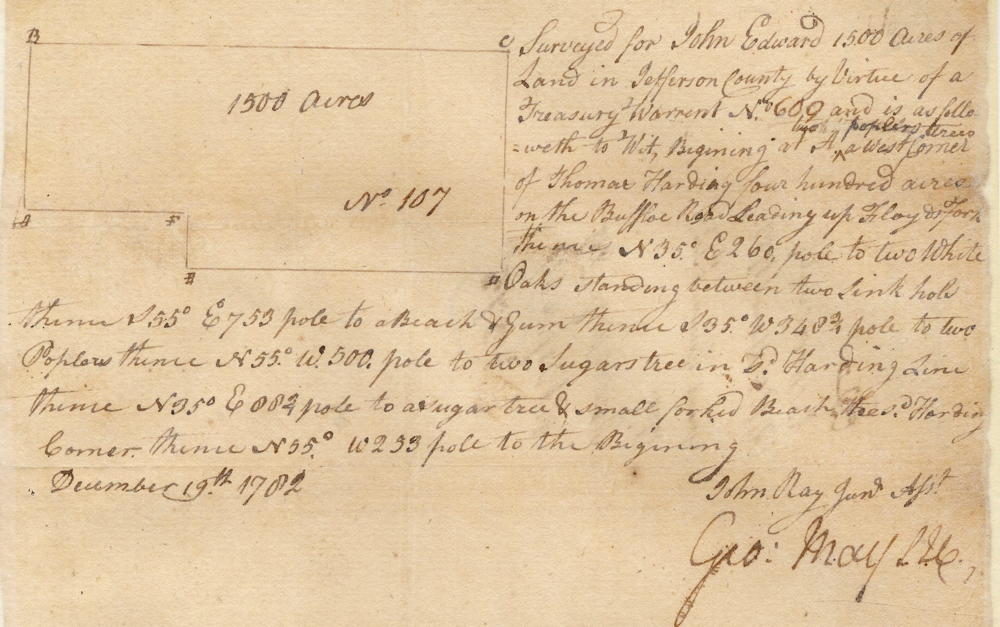 B
C
1500 Acres
No 107
A
F
E
D
Surveyed for John Edward 1500 Acres of
Land in Jefferson County by Virtue of a
Treasury Warrent No 609 and is as follo-
two poplers trees
=weth to Wit, Bigining at A, a West Corner
of Thomas Harding four hundred acres
on the Buffloe Road Leading up Floyds Fork
thence N35° E260, pole to two White
Oaks standing between two sink hols
thence S55° E753 pole to a Beach & Gum thence S35° W348¾ pole to two
Poplers thence N55° W. 500. pole to two Sugars tree in Sd Harding Line
thence N35° E88¾ pole to a sugar tree & small forked Beach, the sd Harding
Corner. thence N55° W253 pole to the Bigining
December 19th 1782
John Ray Junr Asst
Geo: May S.J.C.,